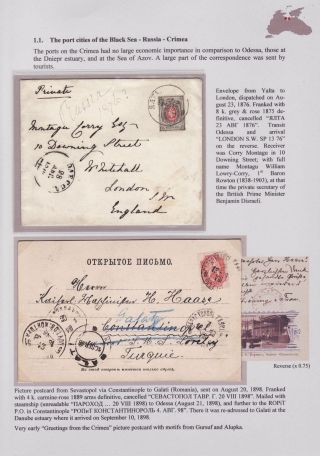 1.1. The port cities of the Black Sea - Russia - Crimea
The ports on the Crimea had no large economic importance in comparison to Odessa, those at
the Dniepr estuary, and at the Sea of Azov. A large part of the correspondence was sent by
tourists.
Private
Montagu Corry Esq
10 Downing Street
Whitehall
London
England
Envelope from Yalta to
London, dispatched on Au-
gust 23, 1876. Franked with
8 k. grey & rose 1875
definitive, cancelled "ЯЛТА
23 АВГ 1876". Transit
Odessa and arrival
"LONDON S.W. SP 13 76"
on the reverse. Receiver
was Corry Montagu in 10
Downing Street; with full
name Montagu William
Lowry-Corry, 1st Baron
Rowton (1838-1903), at that
time the private secretary of
the British Prime Minister
Benjamin Disraeli.
ОТКРЫТОЕ ПИСЬМО.
Herrn
H. Haase
Galatz
Constantinopel
Turquie
Reverse (x 0.75)
Picture postcard from Sevastopol via Constantinople to Galati (Romania), sent on August 20, 1898. Franked
with 4 k. carmine-rose 1889 arms definitive, cancelled "СЕВАСТОПОЛ ТАВР. Г. 20 VIII 1898". Mailed with
steamship (unreadable "ПАРОХОД ... 20 VIII 1898) to Odessa (August 21, 1898), and further to the ROPiT
P.O. in Constantinople "РОПиТ КОНСТАНТИНОПОЛЬ 4. АВГ. 98". There it was re-adressed to Galati at the
Danube estuary where it arrived on September 10, 1898.
Very early "Greetings from the Crimea" picture postcard with motifs from Gursuf and Alupka.